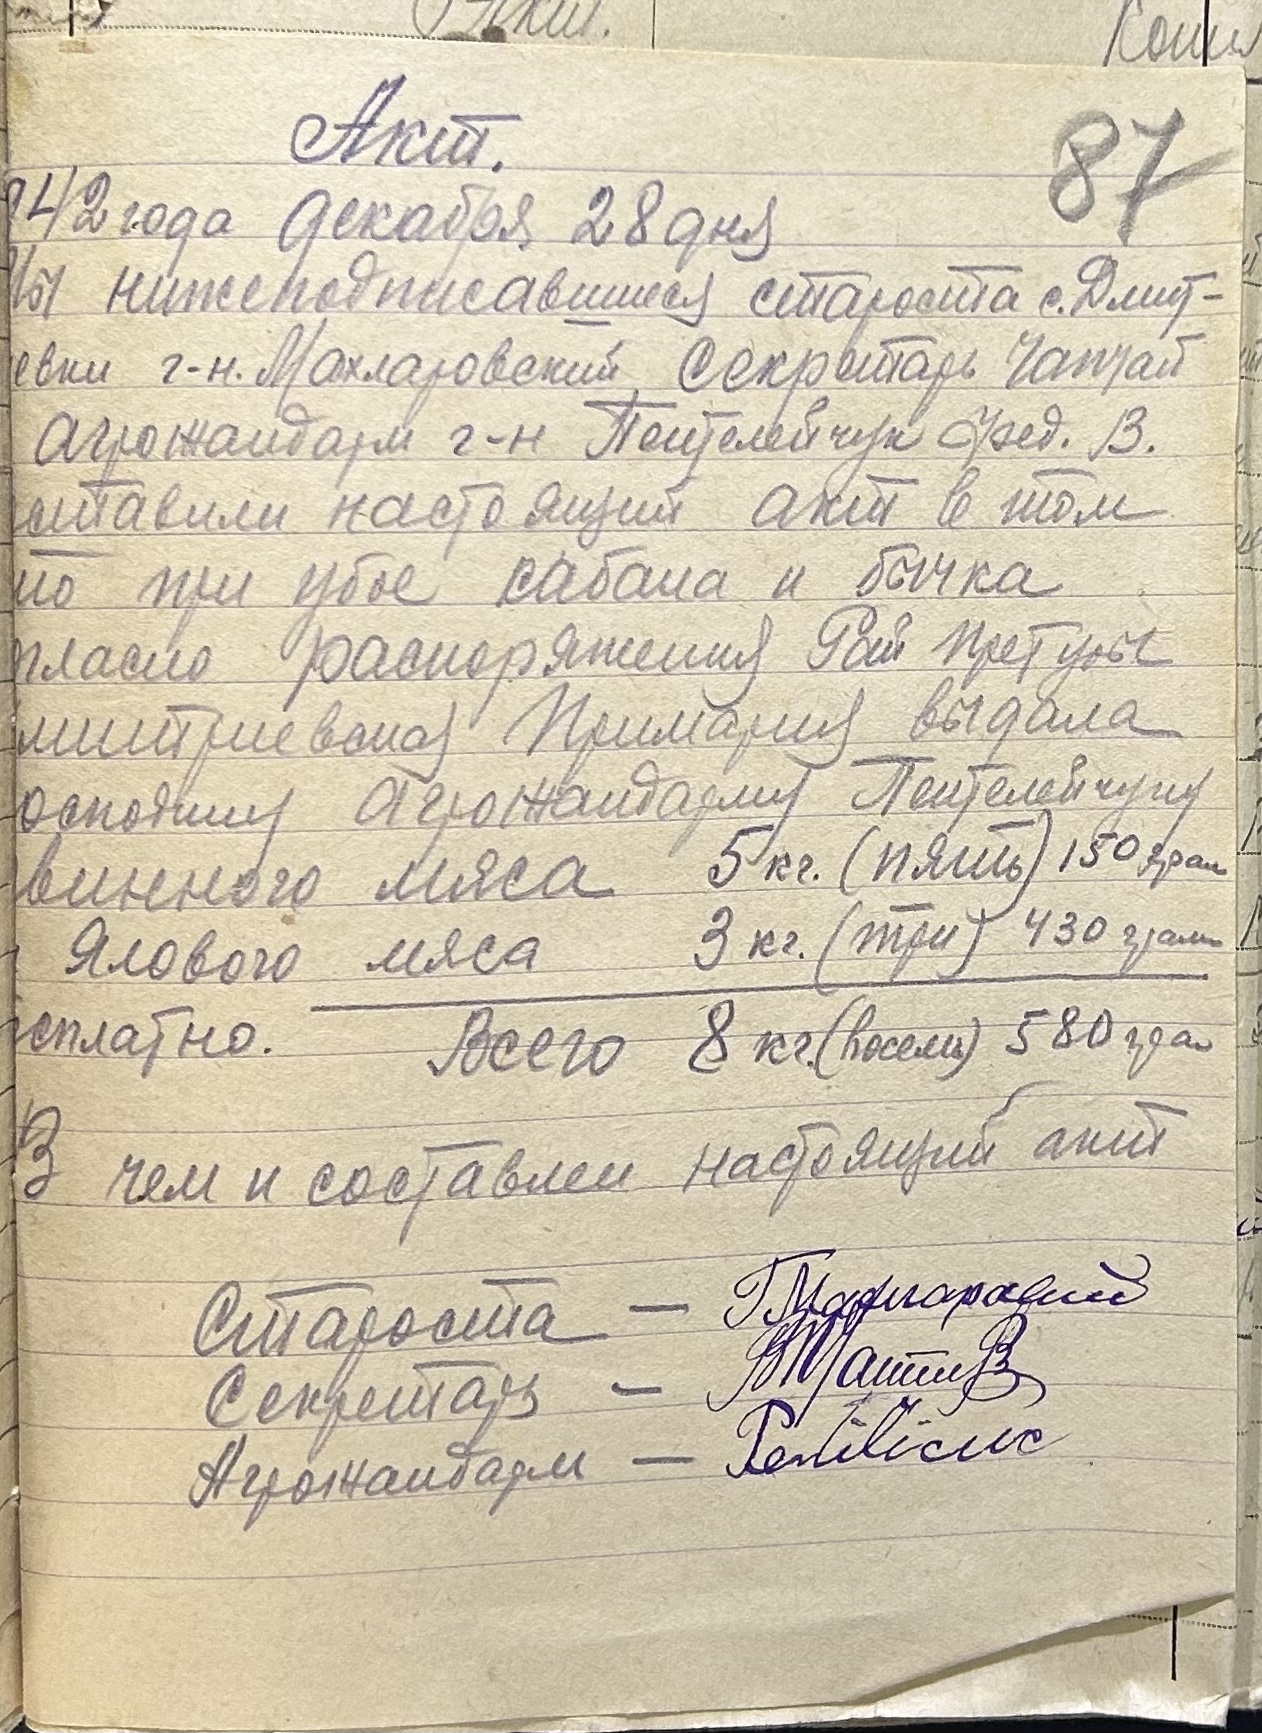 Акт.
87
942 года декабря 28 дня
Мы нижеподписавшиеся староста с. Дмит-
евки г-н. Махларовский, Секретарь Чапчай
Агрожандарм г-н Пентелейчук Фед. В.
оставили настоящий акт в том
что при убое кабана и бычка
огласно распоряжения Рай претуры
митриевская Примария выдала
осподину Агрожандарму Пентелейчуку
винного мяса 5 кг. (пять) 150 грам
Ялового мяса 3 кг. (три) 430 грамм
сплатно. Всего 8 кг. (восемь) 580 грам
В чем и составлен настоящий акт
Староста —
Секретарь —
Агрожандарм —